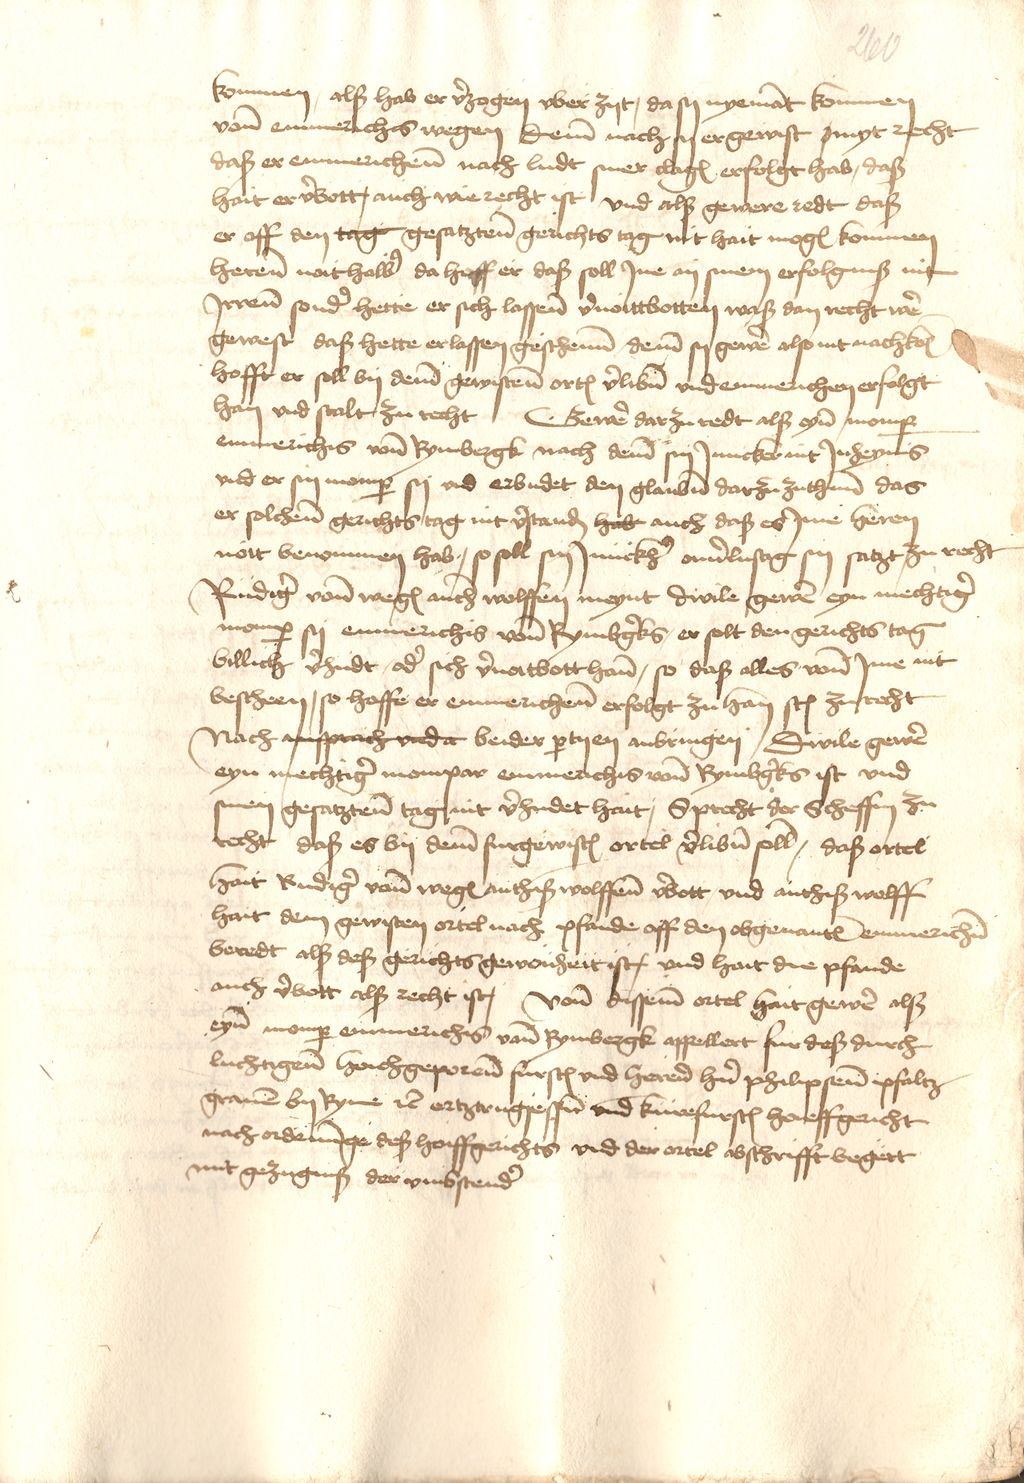 260
kommen / alß hab er v̓zogen vber zijt / da sij nyema̅t kommen
von̅ emmerichs wegen Dem̅ nach sij er gewist myt recht
daß er emmerichen̅ nach ludt siner clag erfolgt hab / daß
hait er v̓bott / auch wie recht ist vnd alß gewere redt daß
er off den tag gesatzten̅ gerichts tag nit hait mog kommen
heren̅ noit halb̓ da hoff er daß soll Jne an sinem erfolgniß nit
Jrren̅ sond̓ hette er sich lassen̅ v̓noittbotten waß dan recht we̅r
gewest daß hette er lassen gescheen̅ dem̅ sij gewe̅r also nit nachko̅
hofft er soll bij dem̅ gewisten̅ ortel v̓libn̅ vnd emmerichen erfolgt
han vnd stalt zu recht Gewe̅r dar zu redt alß eyn̅ momp̱
emmerichs von̅ Rymbergk nach dem̅ sin Juncker nit Jnheyms
vnd er sin momp̱ sij vnd erbudet den glaubn̅ dar zu zuthun̅ das
er solchen̅ gerichts tag nit v̓stand hab auch daß es Jme heren
noit benommen hab / so soll sin Junckh̓ onu̓lustig sin satzt zu recht
Rudig̓ von̅ weg anth̅ wolffen meynt diwile gewe̅r eyn mechtig̓
momp̱ sij emmerichs von̅ Rymbg̓ks er solt den gerichts tag
billich v̓hudt / od̓ sich v̓noitbott han̅ / so daß alles von̅ Jme nit
bescheen / so hoffe er emmerichen̅ erfolgt zu han stet zu recht
Nach ansprach vnd a beider p̱tyen anbringen / Diwile gewe̅r
eyn mechtig̓ mompar emmerichs von̅ Rymbg̓ks ist vnd
sinen gesatzten̅ tag nit v̓hudet hait / Spricht der Scheffin zu
recht daß es bij dem̅ furgewist ortel v̓libn̅ soll / daß ortel
hait Rudig̓ von̅ weg anthiß wolffen̅ v̓bott vnd anthiß wolff
hait dem gewisten ortel nach pfande off den obgenant emmerichn̅
beredt alß deß gerichts gewonheit ist / vnd hait die pfande
auch v̓bott alß recht ist / Von̅ dissem̅ ortel hait gewe̅r alß
eyn̅ momp̱ emmerichs von̅ Rymbergk appellert fur deß durch
luchtigen̅ hochgeporen̅ furst vnd heren̅ hn̓ philipsen̅ pfaltz
grauen bij Ryne ꝛc ertztrugsessen̅ vnd kurefurst hoeffgericht
nach ordenunge deß hoiffgerichts vnd der ortel abschrifft begert
mit gezugniß der vmbstend̓